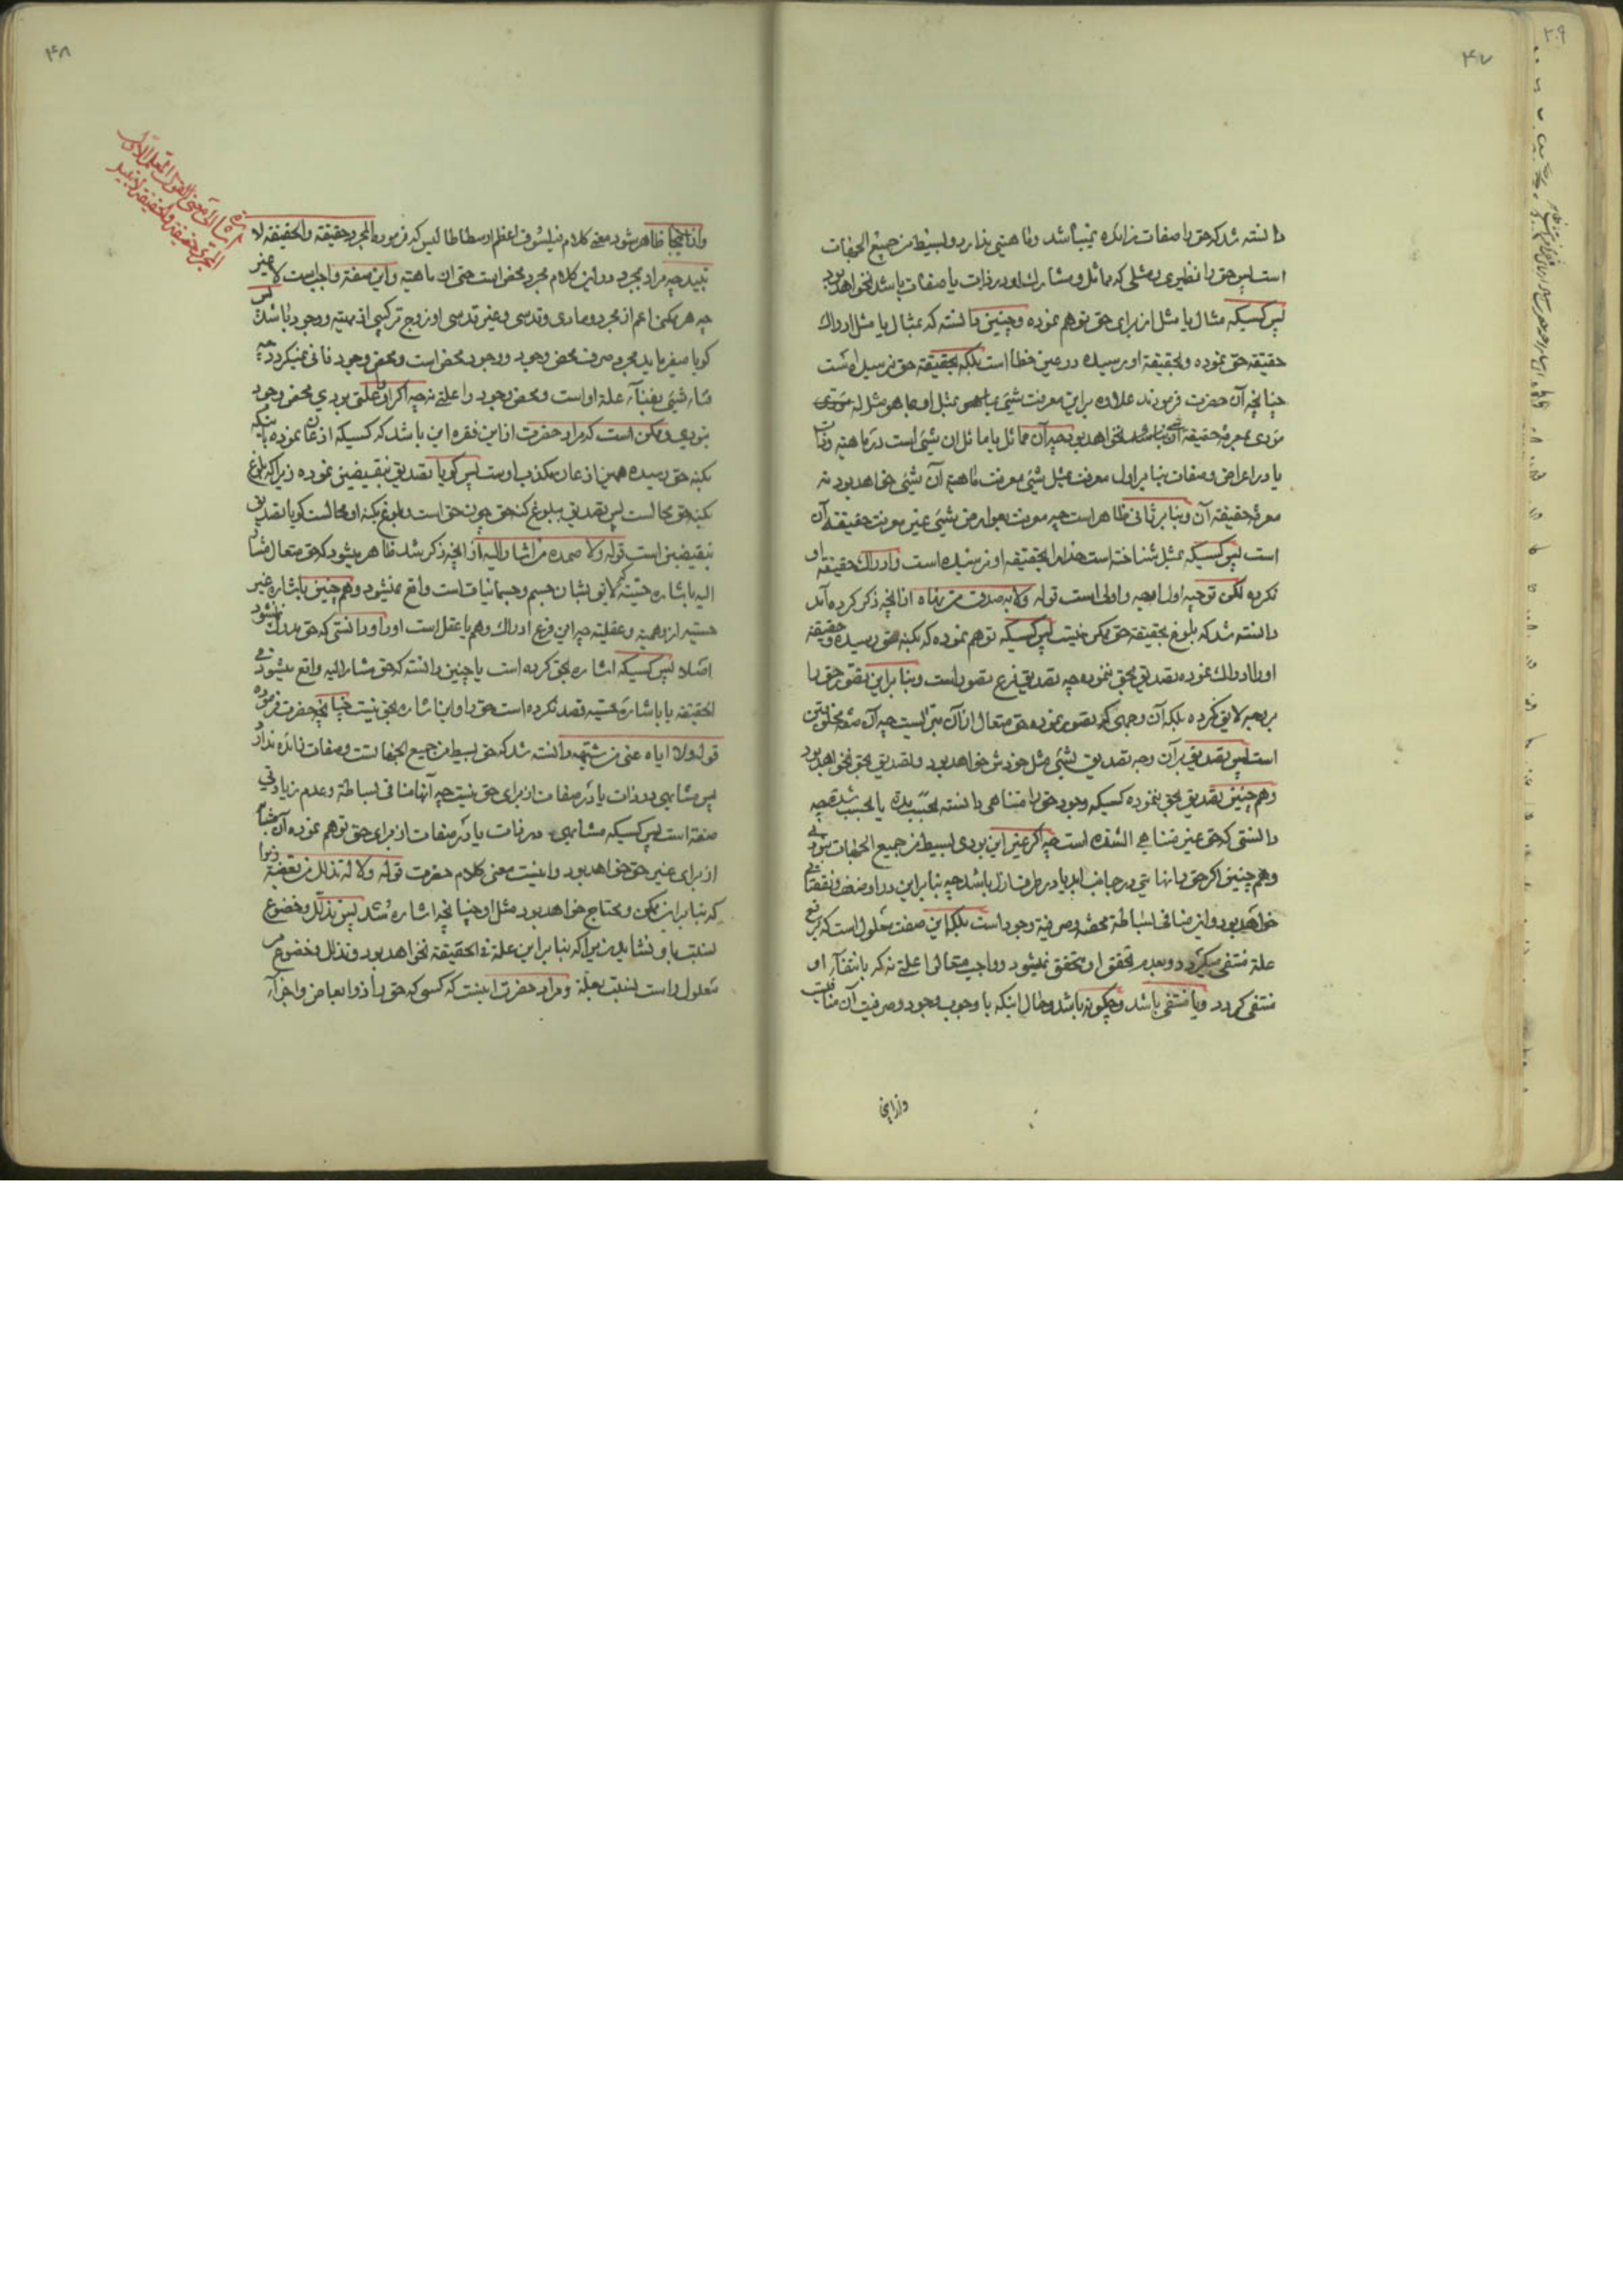 ۴۷
دانسته شد که حق را صفات زائده نمیباشد و ماهیتی ندارد و بسیط من جمیع الجهات
است پس حق را نظیری و مثلی که مماثل و مشارک او در ذات یا صفات باشد نخواهد بود
پس کسیکه مثال یا مثل از برای حق توهم نموده و چنین دانسته که بمثال یا مثل ادراک
حقیقة حق نموده و بحقیقة او رسیده در عین خطا است بلکه بحقیقة حق نرسیده است
چنانچه آن حضرت فرمودند علاوه بر این معرفت شیئ بما هو بمثل او بما هو مثل له
مؤدی بمعرفة حقیقة آن شیئ نخواهد بود چه آن مماثل یا مماثل ان شیئ است در ماهیة و ذات
یا در اعراض و صفات بنا بر اول معرفت مثل شیئ معرفت ماهیة آن شیئ خواهد بود نه
معرفة حقیقة آن و بنا بر ثانی ظاهر است چه معرفت عوارض شیئ غیر معرفت حقیقة آن
است پس کسیکه بمثل شناخته است خدا را بحقیقة او نرسیده است و ادراک حقیقة او
نکرده لکن توجیه اول اوجه و اولی است قوله ولا به صدق من نهاه از آنچه ذکر کرده آمد
دانسته شد که بلوغ بحقیقة حق ممکن نیست پس کسیکه توهم نموده که بکنه حق رسیده و حقیقة
او را ادراک نموده تصدیق بحق ننموده چه تصدیق فرع تصور است و بنا بر این تصور حق را
بر وجه لایق نکرده بلکه آن وجهی که تصور نموده حق متعال از آن متعالیست چه آن صفة مخلوقین
است پس تصدیق بر آن وجه تصدیق بشیئ مثل خودش خواهد بود و تصدیق بحق نخواهد بود
و هم چنین تصدیق بحق ننموده کسیکه وجود حق را متناهی دانسته بحسب مدة یا بحسب شدة چه
دانستی که حق غیر متناهی الشده است چه اگر غیر این بودی بسیط من جمیع الجهات نبودی
و هم چنین اگر حق را نهایتی در جانب ابد یا در طرف ازل باشد چه بنا بر این در او ضعف و نقصانی
خواهد بود و این منافی بساطة محضه و صرفیة وجود است بلکه این صفت معلول است که برفع
علة منتفی میگردد و بعدم تحقق او متحقق نمیشود و واجب متعالی را علتی نه که بانتفآء او
منتفی گردد و یا منتفی باشد و چگونه باشد و حال اینکه با وجوب وجود و صرفیت آن منافیست
و از اینجا
۴۸
و از اینجا ظاهر میشود معنی کلام فیلسوف اعظم ارسطاطالیس که فرموده المجرد حقیقة و الحقیقة لا
تبید چه مراد بمجرد در این کلام مجرد محض است حتی از ماهیة و این صفة واجب است لا غیر
چه هر ممکن اعم از مجرد و مادی و قدسی و غیر قدسی او زوج ترکیبی از مهیة و وجود باشد پس
گویا میفرماید مجرد صرف محض وجود و وجود محض است و محض وجود فانی نمیگردد چه
فنآء شیئ بفنآء علة او است و محض وجود را علتی نه چه اگر او را علتی بودی محض وجود
نبودی و ممکن است که مراد حضرت از این فقره این باشد که کسیکه اذعان نموده باینکه
بکنه حق رسیده همین اذعان مکذب اوست پس گویا تصدیق بنقیضین نموده زیرا که بلوغ
بکنه حق محالست پس تصدیق ببلوغ کنه حق چون حق است و بلوغ بکنه او محالست گویا تصدیق
بنقیضین است قوله ولا صمده من اشار الیه از آنچه ذکر شد ظاهر میشود که حق متعال مشار
الیه باشاره حسیة که لایق بشان جسم و جسمانیات است واقع نمیشود و هم چنین باشاره غیر
حسیه از وهمیة و عقلیة چه این فرع ادراک وهم یا عقل است او را و دانستی که حق مدرک نمیشود
اصلا پس کسیکه اشاره بحق کرده است یا چنین دانسته که حق مشار الیه واقع میشود فی
الحقیقة یا باشارة حسیه قصد نکرده است حق را و این اشاره بحق نیست چنانچه حضرت فرموده
قوله ولا ایاه عنی من شبهه دانسته شد که حق بسیط من جمیع الجهاتست و صفات زائده ندارد
پس مشابهی در ذات یا در صفات از برای حق نیست چه آنها منافی بساطة و عدم زیادتی
صفة است پس کسیکه مشابهی در ذات یا در صفات از برای حق توهم نموده آن مشابه
از برای غیر حق خواهد بود و اینست معنی کلام حضرت قوله ولا له تذلل من بعضه زیرا
که بنا بر این ممکن و محتاج خواهد بود مثل او چنانچه اشاره شد پس تذلل و خضوع
نسبت باو نشاید زیرا که بنا بر این علة فی الحقیقة نخواهد بود و تذلل و خضوع مر
معلول راست بنسبت بعلة و مراد حضرت اینست که کسی که حق را ذو ابعاض و اجزآء
اشارة الی معنی القول المعلم الاول
المجرد حقیقة والحقیقة لا تبید